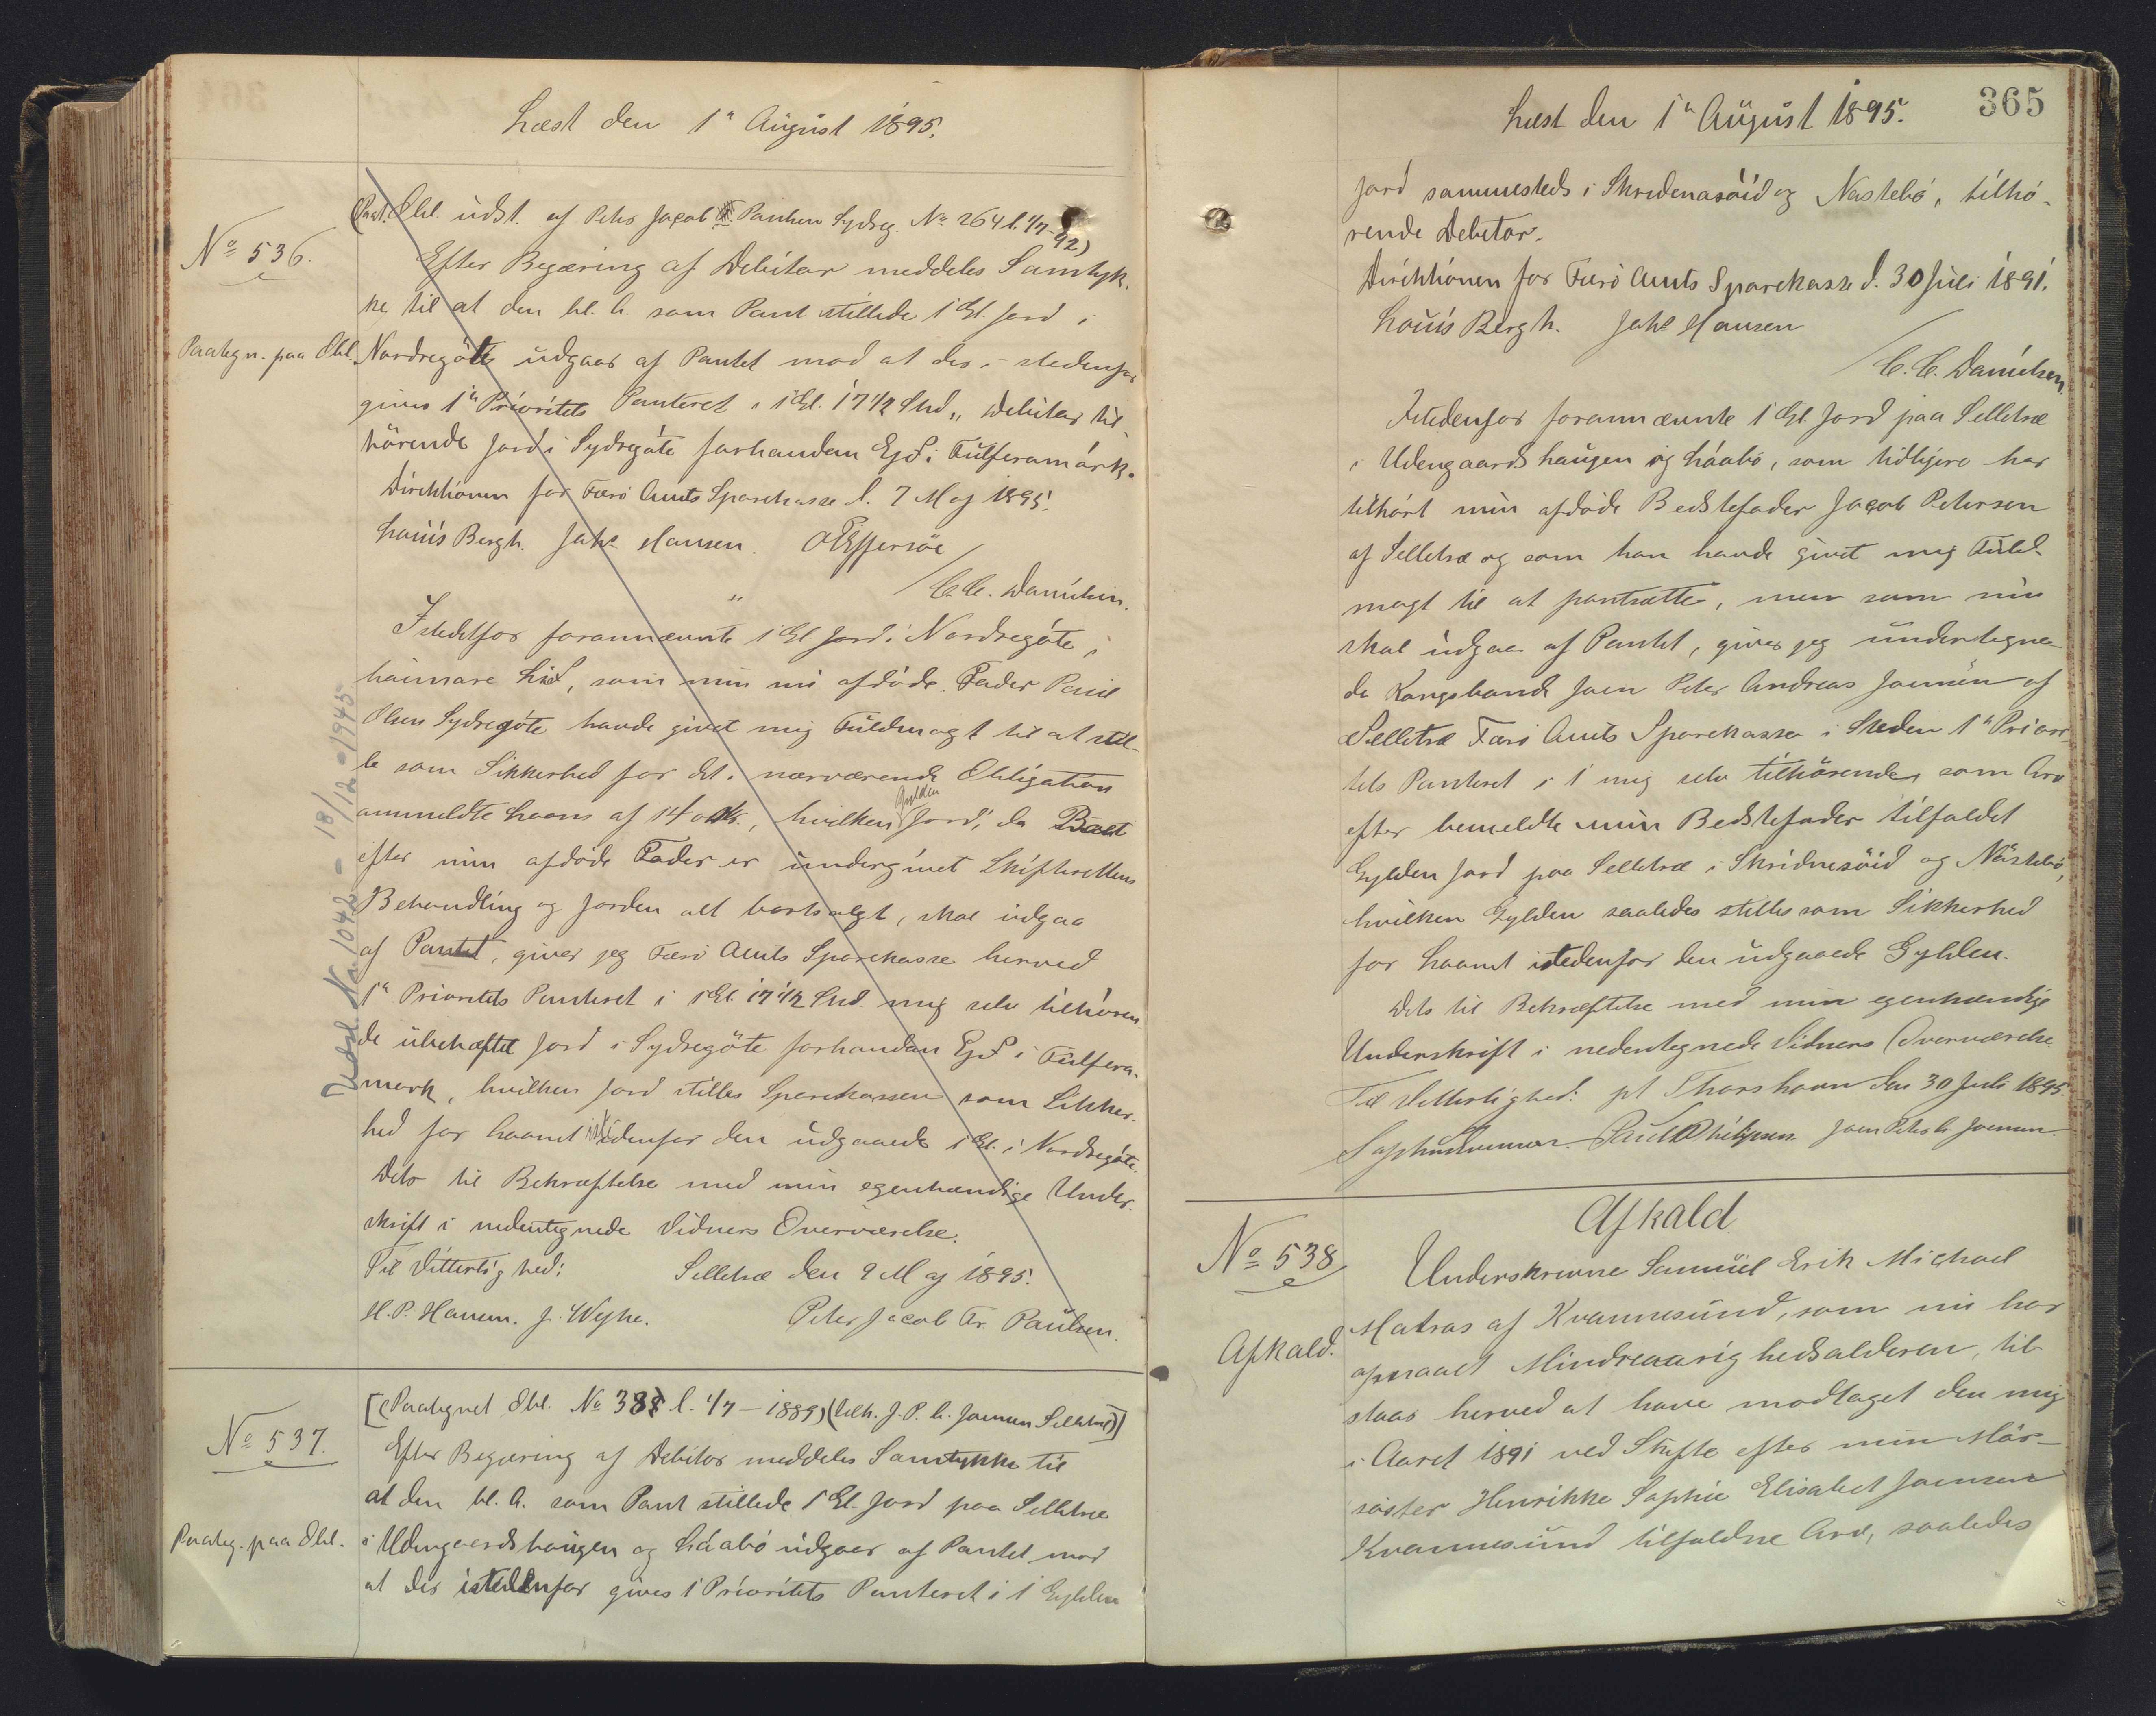 Læst den 1ste August 1895.
(Pant. Obl. udst. af Peter Jacob Tr. Paulsen Sydreg. No 264 l. 1/7-92)
No 536.
Efter Begæring af Debitor meddeles Samtyk-
ke til at den bl. A. som Pant stillede 1 Gl. Jord i
Paategn. paa Obl.
Nordregöte udgaar af Pantet mod at der i stedenfor
gives 1ste Prioritets Panteret i 1 Gl. 17 1/2 Skd., Debitor til-
hörende Jord i Sydregöte forhandem Ejd i Fulferamark.
Direktionen for Færö Amts Sparekasse d. 7 Maj 1895.
Louis Bergh. Johs Hansen. O Effersöe
/ C.C. Danielsen.
Istedetfor forannævnte 1 Gl Jord i Nordregöte, i
haimare Lid, som min nu afdöde Fader Poul
Olsen Sydregöte havde givet mig Fuldmagt til at stil-
le som Sikkerhed for det i nærværende Obligation
ommeldte Laan af 1400 Kr., hvilken Gylden Jord, da Boet
efter min afdöde Fader er undergivet Skifterettens
Behandling og Jorden alt bortsolgt, skal udgaa
af Pantet, giver jeg Færö Amts Sparekasse herved
1ste Prioritets Panteret i 1 Gl. 17 1/2 Skd. mig selv tilhören-
de ubehæftet Jord i Sydregöte forhandan Ejd i Fulfera-
mark, hvilken Jord stilles Sparekassen som Sikker-
hed for Laanet istedenfor den udgaaede 1 Gl. i Nordregöte.
Dets til Bekræftelse med min egenhændige Under-
skrift i nedentegnede Vidners Overværelse.
Til Vitterlighed: Selletræ den 9 Maj 1895.
H.P. Hansen. J. Weyhe. Peter Jacob Tr. Paulsen.
Udsl. No 1042 - 18/12 - 1945
No 537.
[(Paategnet Obl. No 388 l. 1/7 - 1889) (tilh. J. P. A. Joensen Selletræ)]
Efter Begæring af Debitor meddeles Samtykke til
at den bl. A. som Pant stillede 1 Gl. Jord paa Selletræ
Paateg. paa Obl.
i Udengaardshaugen og Láabö udgaar af Pantet mod
at der istedenfor gives 1 Prioritets Panteret i 1 Gylden
Læst den 1ste August 1895.
365
Jord sammesteds i Skredenasöid og Nastebö, tilhö-
rende Debitor.
Direktionen for Færö Amts Sparekasse d. 30 Juli 1891.
Louis Bergh. Johs Hansen
/ C.C. Danielsen.
Istedenfor forannævnte 1 Gl Jord paa Selletræ
i Udengaardshaugen og Láabö, som tidligere har
tilhört min afdöde Bedstefader Jacob Petersen
af Selletræ og som han havde givet mig Fuld-
magt til at pantsætte, men som nu
skal udgaa af Pantet, giver jeg undertegne-
de Kongsbonde Joen Peter Andreas Joensen af
Selletræ Færö Amts Sparekasse i Steden 1ste Priori-
tets Panteret i 1 mig selv tilhörende, som Arv
efter bemeldte min Bedstefader tilfaldet
Gylden Jord paa Selletræ i Skridnesöid og Nástebö,
hvilken Gylden saaledes stilles som Sikkerhed
for Laanet istedenfor den udgaaede Gylden.
Dets til Bekræftelse med min egenhændige
Underskrift i nedentegnede Vidners Overværelse.
Til Vitterlighed: pt Thorshavn den 30 Juli 1895.
Poul Philipsen. Joen Peter A. Joensen.
Afkald
No 538
Underskrevne Samuel Erik Michael
Matras af Kvannesund, som nu har
Afkald.
opnaaet Mindreaarighedsalderen, til-
staar herved at have modtaget den mig
i Aaret 1891 ved Skifte efter min Mor-
söster Henrikke Sophie Elisabet Joensen
Kvannesund tilfaldne Arv, saaledes